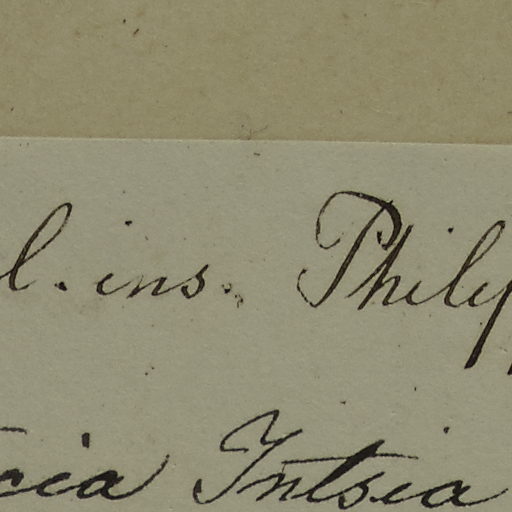 l. ins. Philip
cia Intsia